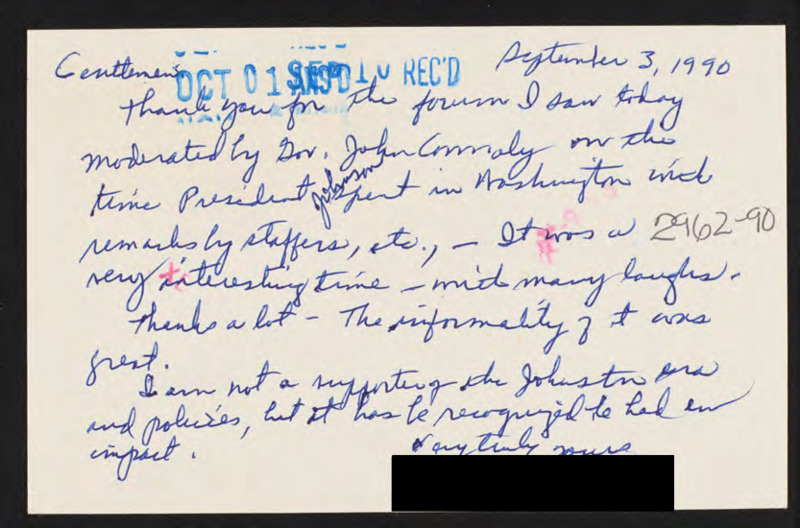 September 3, 1990
Gentlemen
OCT 01 ANS'D SEP 10 REC'D
Thank you for the forum I saw today
moderated by Gov. John Connoly on the
time President Johnson spent in Washington with
remarks by staffers, etc., – It was a
2962-90
very interesting time – with many laughs.
Thanks a lot – The informality of it was
great.
I am not a supporter of the Johnston era
and policies, but it has to be recognized he had an
impact.
Very truly yours